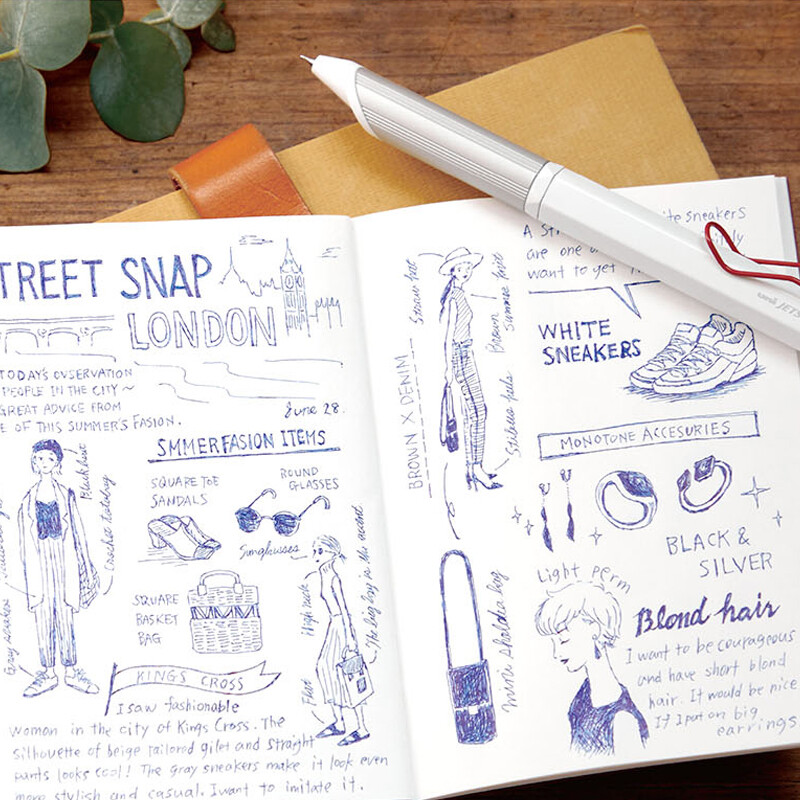 TREET SNAP
LONDON
TODAY'S OVSERVATION
PEOPLE IN THE CITY~
GREAT ADVICE FROM
E OF THIS SUMMER'S FASION.
June 28.
SMMERFASION ITEMS
Black hat
Crochet
SQUARE TOE
SANDALS
ROUND
GLASSES
Sunglasses
SQUARE
BASKET
BAG
Gray sneakers
High neck
Flat
The big bag is the accent
KINGS CROSS
I saw fashionable
women in the city of Kings Cross. The
silhouette of beige tailored gilet and straight
pants looks cool! The gray sneakers make it look even
more stylish and casual. I want to imitate it.
BROWN X DENIM
Straw hat
Brown
summer
mini sholder bag
A St
ite sneakers
are one
want to get
WHITE
SNEAKERS
MONOTONE ACCESURIES
BLACK &
SILVER
Light perm
Blond hair
I want to be courageous
and have short blond
hair. It would be nice
if I put on big
earrings
uni JETS